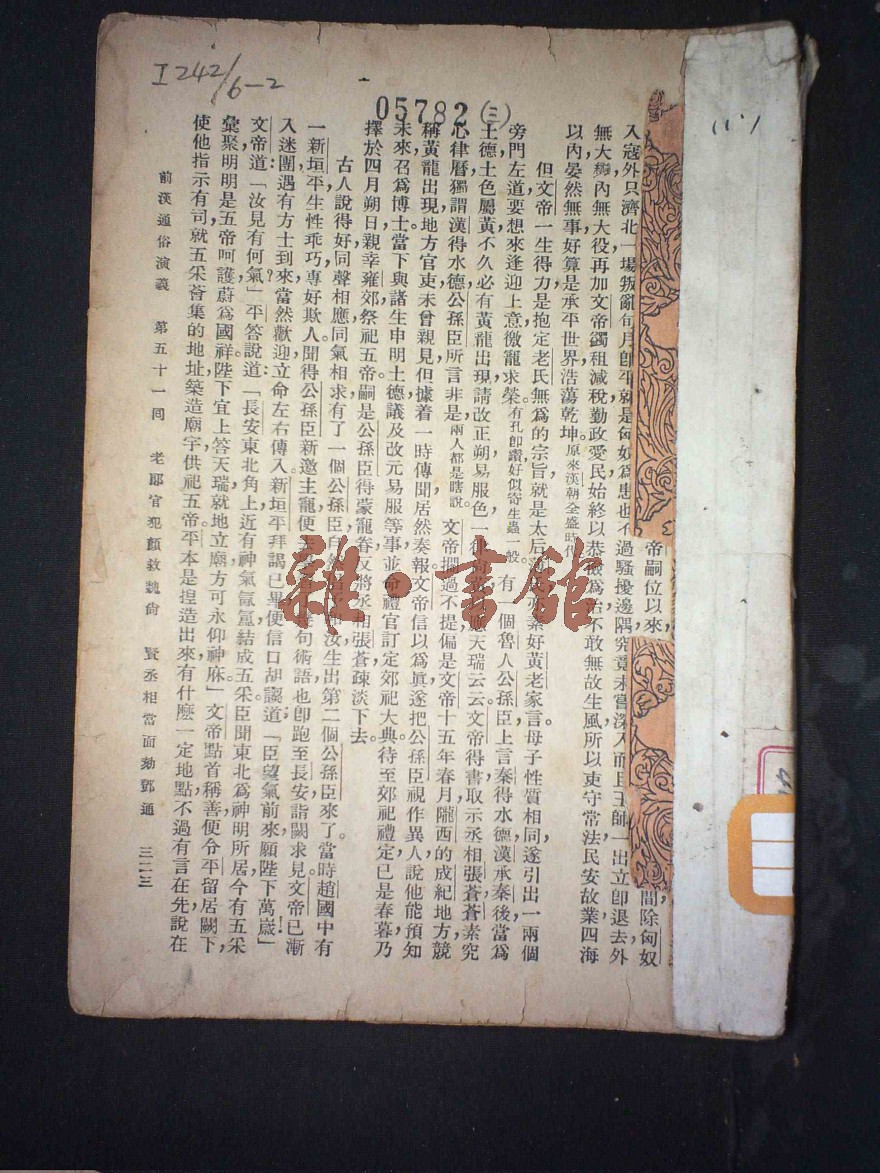 I242/6-2
05782(三)
帝嗣位以來,
間除匈奴
入寇外只濟北一場叛亂旬月卽平就是匈奴爲患也不過騷擾邊隅究竟未嘗深入而且王師一出立卽退去外
無大內無大役再加文帝蠲租減稅勤政愛民始終以恭儉爲治不敢無故生風所以吏守常法民安故業四海
以內晏然無事好算是承平世界浩蕩乾坤。原來漢朝全盛時代
但文帝一生得力是抱定老氏無爲的宗旨就是太后氏亦素好黃老家言。母子性質相同,遂引出一兩個
旁門左道要想來逢迎上意徼寵求榮。有孔卽鑽好似寄生蟲一般有個魯人公孫臣上言秦得水德漢承秦後當爲
土德土色屬黃不久必有黃龍出現請改正朔易服色一律尚天瑞云云文帝得書取示丞相張蒼蒼素究
心律曆獨謂漢得水德公孫臣所言非是。兩人都是瞎說。文帝擱過不提偏是文帝十五年春月隴西的成紀地方競
稱黃龍出現地方官吏未曾親見但據着一時傳聞居然奏報文帝信以爲眞遂把公孫臣視作異人說他能預知
未來召爲博士。當下與諸生申明土德議及改元易服等事並命禮官訂定郊祀大典。待至郊祀禮定已是春暮乃
擇於四月朔日親幸雍郊祭祀五帝嗣是公孫臣得蒙寵眷反將丞相張蒼疎淡下去。
古人說得好同聲相應同氣相求有了一個公孫臣汝生出第二個公孫臣來了。當時趙國中有
一新垣平生性乖巧專好欺人聞得公孫臣新邀主寵便去句術語也卽跑至長安詣闕求見。文帝已漸
入迷團遇有方士到來當然歡迎立命左右傳入。新垣平拜謁已畢便信口胡謅道「臣望氣前來願陛下萬歲!」
文帝道:「汝見有何氣?」平答說道:「長安東北角上近有神氣氤氳結成五采臣聞東北爲神明所居今有五采
彙聚明明是五帝呵護蔚爲國祥。陛下宜上答天瑞就地立廟方可永仰神庥。」文帝點首稱善便令平留居闕下,
使他指示有司就五采薈集的地址築造廟宇供祀五帝。平本是揑造出來有什麼一定地點不過有言在先說在
前漢通俗演義 第五十一回 老郎官犯顏救魏尙 賢丞相當面劾鄧通 三二三
雜·書館